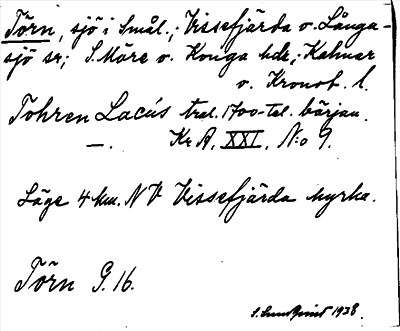 Törn, sjö i Smål.; Vissefjärda o. Långa-
sjö sr; S. Möre o. Konga hdr; Kalmar
o. Kronob. l.
Tohren Lacus trol. 1700-tal. början.
—. Kr A. XXI. N:o 9.
Läge 4 km. NV Vissefjärda kyrka.
Törn G. 16.
S. Lundqvist 1938.